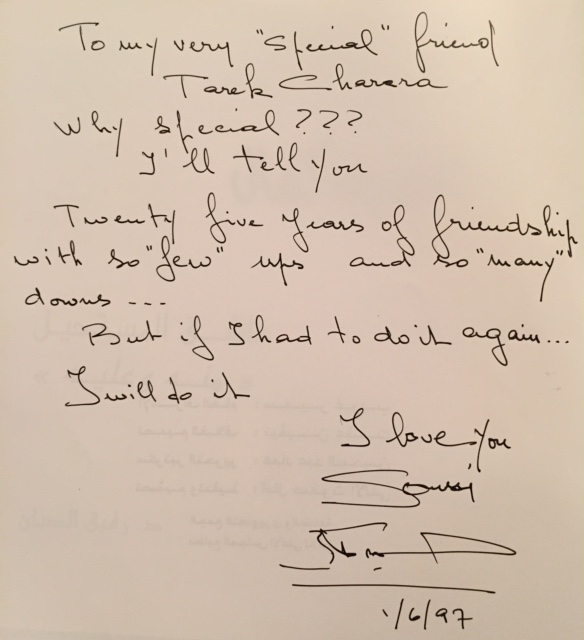 To my very "special" friend
Tarek Charara
Why special ???
I'll tell you
Twenty five years of friendship
with so "few" ups and so "many"
downs ---
But if I had to do it again...
I will do it
I love you
Soussi
1/6/97